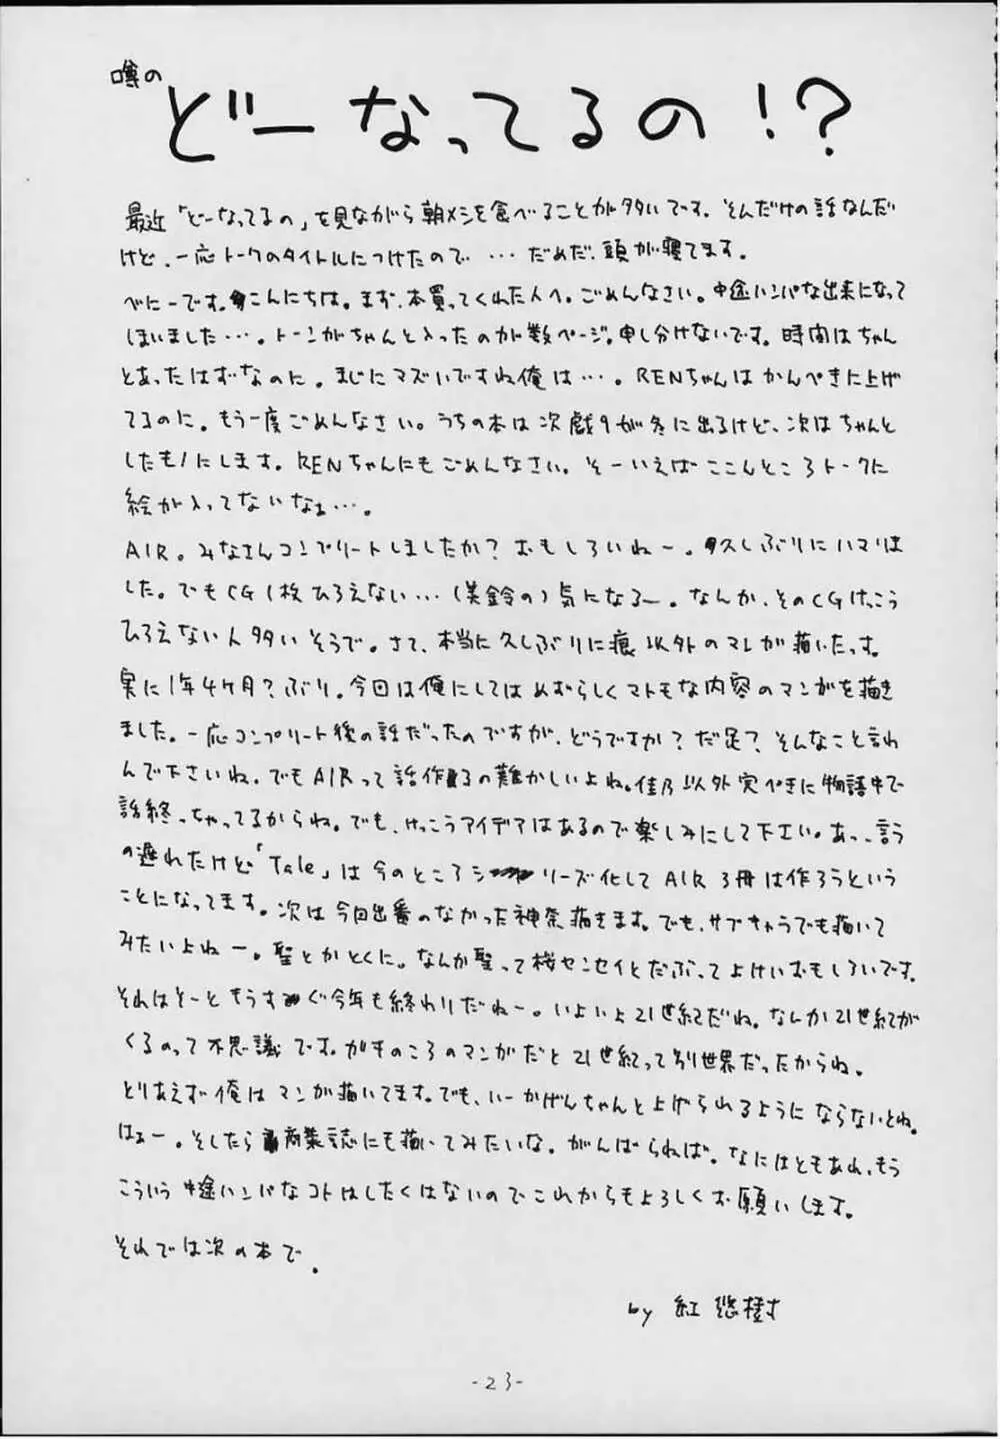 噂の
どーなってるの!?
最近「どーなってるの」を見ながら朝メシを食べることが多いです。そんだけの話なんだ
けど、一応トークのタイトルにつけたので…だめだ、頭が寝てます。
べにーです。こんにちは。まず、本買ってくれた人へ。ごめんなさい。中途ハンパな出来になって
しまいました…。トーンがちゃんと入ったのが数ページ。申し分けないです。時間はちゃん
とあったはずなのに。まじにマズいですね俺は…。RENちゃんはかんぺきに上げ
てるのに。もう一度ごめんなさい。うちの本は次戯9が冬に出るけど、次はちゃんと
したもノにします。RENちゃんにもごめんなさい。そーいえばここんところトークに
絵が入ってないなぁ…。
AIR。みなさんコンプリートしましたか?おもしろいねー。久しぶりにハマりま
した。でもCG1枚ひろえない…(美鈴の)気になるー。なんか、そのCGけっこう
ひろえない人多いそうで。さて、本当に久しぶりに痕以外のマンガ描いたっす。
実に1年4ケ月?ぶり。今回は俺にしてはめずらしくマトモな内容のマンガを描き
ました。一応コンプリート後の話だったのですが、どうですか?だ足?そんなこと言わ
んで下さいね。でもAIRって話作るの難かしいよね。佳乃以外完ぺきに物語中で
話終っちゃってるからね。でも、けっこうアイデアはあるので楽しみにして下さい。あっ、言う
の遅れたけど「Tale」は今のところシリーズ化してAIR3冊は作ろうという
ことになってます。次は今回出番のなかった神奈描きます。でも、サブキャラでも描いて
みたいよねー。聖とかとくに。なんか聖って桜センセイとだぶってよけいおもしろいです。
それはそーともうすぐ今年も終わりだねー。いよいよ21世紀だね。なんか21世紀が
くるのって不思議です。ガキのころのマンガだと21世紀って別世界だったからね。
とりあえず俺はマンガ描いてます。でも、いーかげんちゃんと上げられるようにならないとね。
はぁー。そしたら商業誌にも描いてみたいな。がんばられば。なにはともあれ、もう
こういう中途ハンパなコトはしたくはないのでこれからもよろしくお願いします。
それでは次の本で。
by 紅 悠樹
-23-